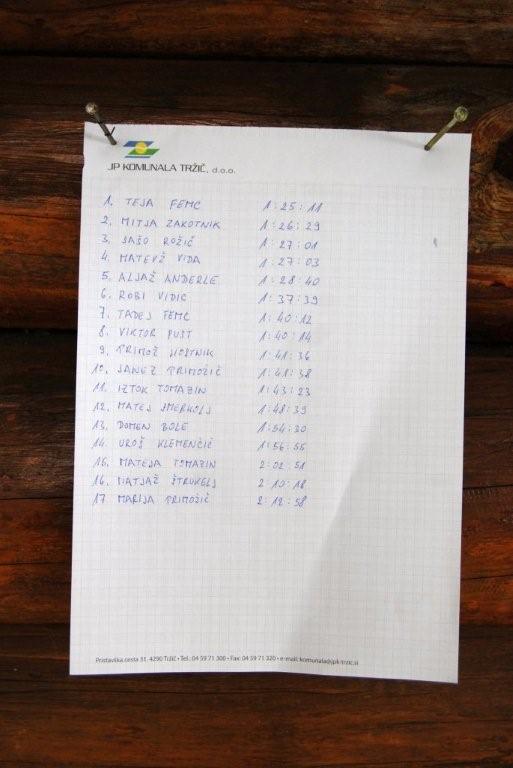 JP KOMUNALA TRŽIČ, d.o.o.
1. TEJA FEMC 1:25:11
2. MITJA ZAKOTNIK 1:26:29
3. SAŠO ROŽIČ 1:27:01
4. MATEVŽ VIDA 1:27:03
5. ALJAŽ ANDERLE 1:28:40
6. ROBI VIDIC 1:37:39
7. TADEJ FEMC 1:40:12
8. VIKTOR PUST 1:40:14
9. PRIMOŽ 1:41:36
10. JANEZ PRIMOŽIČ 1:41:38
11. IZTOK TOMAZIN 1:43:23
12. MATEJ SMERKOLJ 1:48:39
13. DOMEN BOLE 1:54:30
14. UROŠ KLEMENČIČ 1:56:55
15. MATEJA TOMAZIN 2:02:51
16. MATJAŽ ŠTRUKELJ 2:10:18
17. MARIJA PRIMOŽIČ 2:12:58
Pristavška cesta 31, 4290 Tržič • Tel.: 04 59 71 300 • Fax: 04 59 71 320 • e-mail: komunala@jpk-trzic.si